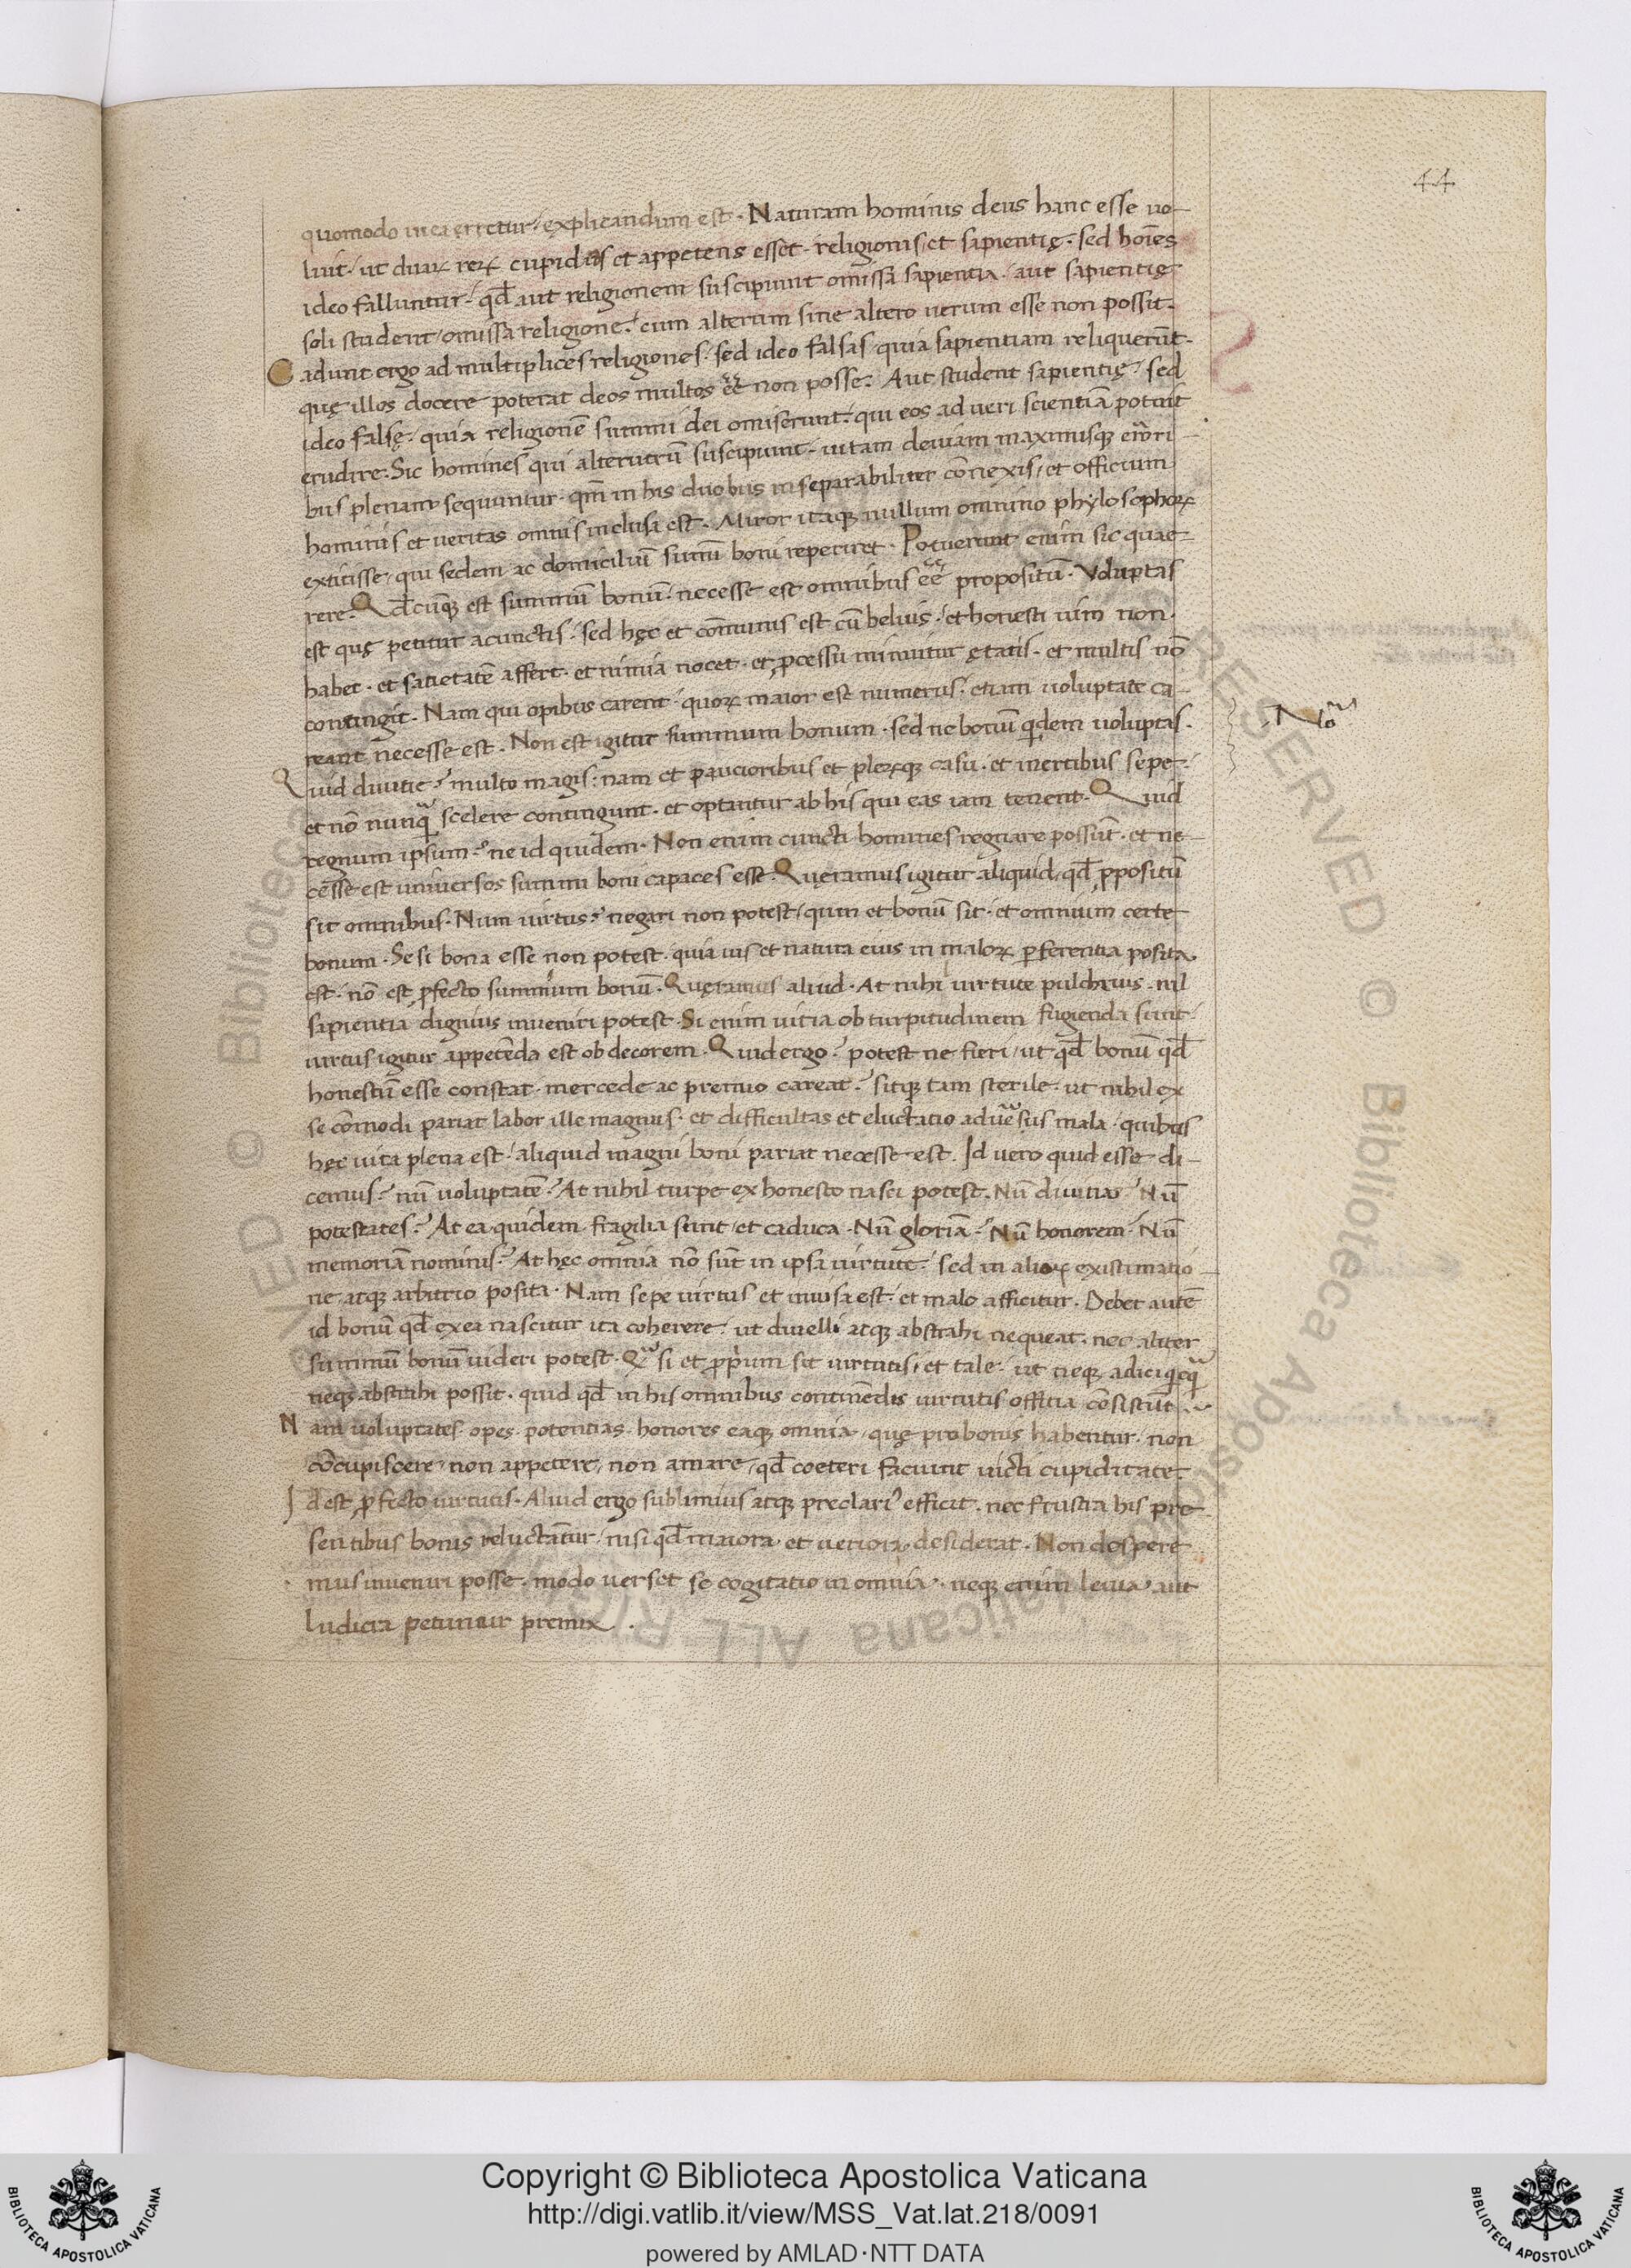 44
quomodo in ea erretur / explicandum est . Naturam hominis deus hanc esse uo-
luit / ut duaꝝ reꝝ cupidus et appetens esset . religionis / et sapientię . sed hoīes
ideo falluntur / qđ aut religionem suscipiunt omissa sapientia . aut sapientię
soli student / omissa religione . cum alterum sine altero uerum esse non possit .
Cadunt ergo ad multiplices religiones . sed ideo falsas quia sapientiam reliquerūt .
quę illos docere poterat deos multos eē non posse . Aut student sapientię / sed
ideo falsę . quia religionē summi dei omiserunt . qui eos ad ueri scientiā potuit
erudire . Sic homines qui alterutrū suscipiunt . uitam deuiam maximisqꝫ errori-
bus plenam sequuntur . qm̄ in his duobus inseparabiliter cōnexis / et officium
hominis et ueritas omnis inclusa est . Miror itaqꝫ nullum omnino phylosophoꝝ
extitisse / qui sedem ac domiciliū summi boni reperiret . Potuerunt enim sic quae-
rere . Qđcūqꝫ est summū bonū . necesse est omnibus eē propositū . Voluptas
est quę petitur a cunctis . sed hęc et cōmunis est cū beluis / et honesti uim non
habet . et satietatē affert . et nimia nocet . et ꝓcessu minuitur ętatis . et multis nō
contingit . Nam qui opibus carent . quoꝝ maior est numerus . etiam uoluptate ca-
reant necesse est . Non est igitur summum bonum . sed ne bonū qidem uoluptas .
Quid diuitie ? multo magis : nam et paucioribus et pleꝝqꝫ casu . et inertibus sepe .
et nō nunq̄ scelere contingunt . et optantur ab his qui eas iam tenent . Quid
regnum ipsum ? ne id quidem . Non enim cuncti homines regnare possūt . et ne-
cesse est uniuersos summi boni capaces esse . Queramus igitur aliquid / qđ ꝓpositū
sit omnibus . Num uirtus ? negari non potest / quin et bonū sit . et omnium certe
bonum . Se si bona esse non potest . quia uis et natura eius in maloꝝ ꝑferentia posita
est . nō est ꝓfecto summum bonū . Quęramus aliud . At nihi uirtute pulchrius . nil
sapientia dignius inueniri potest . Si enim uitia ob turpitudinem fugienda sunt .
uirtus igitur appetēda est ob decorem . Quid ergo ? potest ne fieri / ut qđ bonū qđ
honestū esse constat . mercede ac premio careat ? sitqꝫ tam sterile . ut nihil ex
se cōmodi pariat labor ille magnus . et difficultas et eluctatio aduersus mala . quibus
hęc uita plena est . aliquid magni boni pariat necesse est . Id uero quid esse di-
cemus ? nū uoluptatē ? At nihil turpe ex honesto nasci potest . Nū diuitias ? Nū
potestates ? At ea quidem fragilia sunt / et caduca . Nū gloriā ? Nū honorem ? Nū
memoriā nominis ? At hęc omnia nō sūt in ipsa uirtute . sed in alioꝝ existimatio-
ne atqꝫ arbitrio posita . Nam sepe uirtus et inuisa est . et malo afficitur . Debet autē
id bonū qđ ex ea nascitur ita coherere . ut diuelli atqꝫ abstrahi nequeat . nec aliter
summū bonū uideri potest . Qᵃ si et ꝓprium sit uirtutis / et tale . ut neqꝫ adici qcq̄
neqꝫ abstrahi possit . quid qđ in his omnibus continēdis uirtutis offitia cōsistūt .
Nam uoluptates . opes . potentias . honores eaqꝫ omnia / quę pro bonis habentur . non
cōcupiscere / non appetere / non amare / qđ coeteri faciunt uicti cupiditate .
Id est ꝓfecto uirtutis . Aliud ergo sublimius atqꝫ preclariꝰ efficit . nec frustra his pre-
sentibus bonis reluctātur / nisi qđ maiora et ueriora desiderat . Non despere-
mus inueniri posse . modo uerset se cogitatio in omnia . neqꝫ enim leuia aut
ludicra petuntur premia .
Noᵃ
Copyright © Biblioteca Apostolica Vaticana
http://digi.vatlib.it/view/MSS_Vat.lat.218/0091
powered by AMLAD·NTT DATA